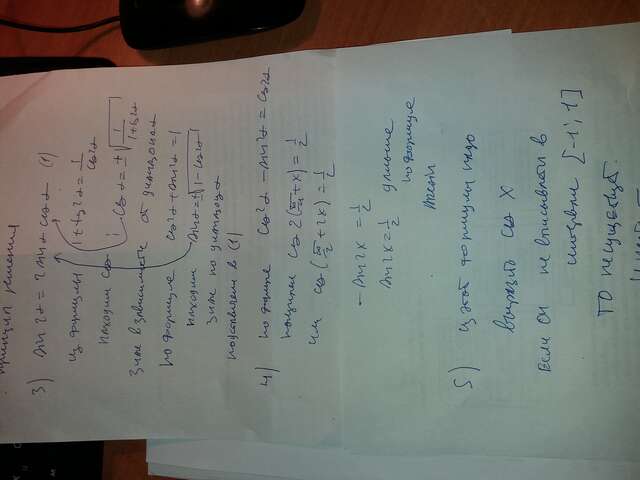 принцип решения
3) sin 2α = 2 sin α cos α (1)
из формулы 1 + tg²α = 1/cos²α
находим cos α = ±√(1/(1+tg²α))
Знак в зависимости от диапазона
по формуле cos²α + sin²α = 1
находим sin α = ±√(1 - cos²α)
Знак по диапазону
подставляем в (1)
4) по формуле cos²α - sin²α = cos2α
получаем cos 2(π/4 + x) = 1/2
или cos (π/2 + 2x) = 1/2
- sin 2x = 1/2
sin 2x = 1/2 дальше
по формуле
5) из этой формулы надо
выразить cos X
Если он не вписывается в
интервал [-1; 1]
то не существует.